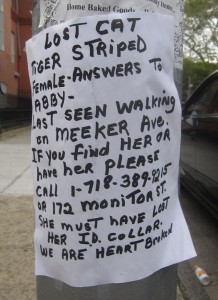 Home Baked Goods
LOST CAT
TIGER STRIPED
FEMALE-ANSWERS TO
ABBY-
LAST SEEN WALKING
ON MEEKER AVE.
IF YOU FIND HER OR
have her PLEASE
CALL 1-718-389-8215
OR 172 MONITOR ST.
SHE MUST HAVE LOST
HER I.D. COLLAR.
WE ARE HEARTBROKEN